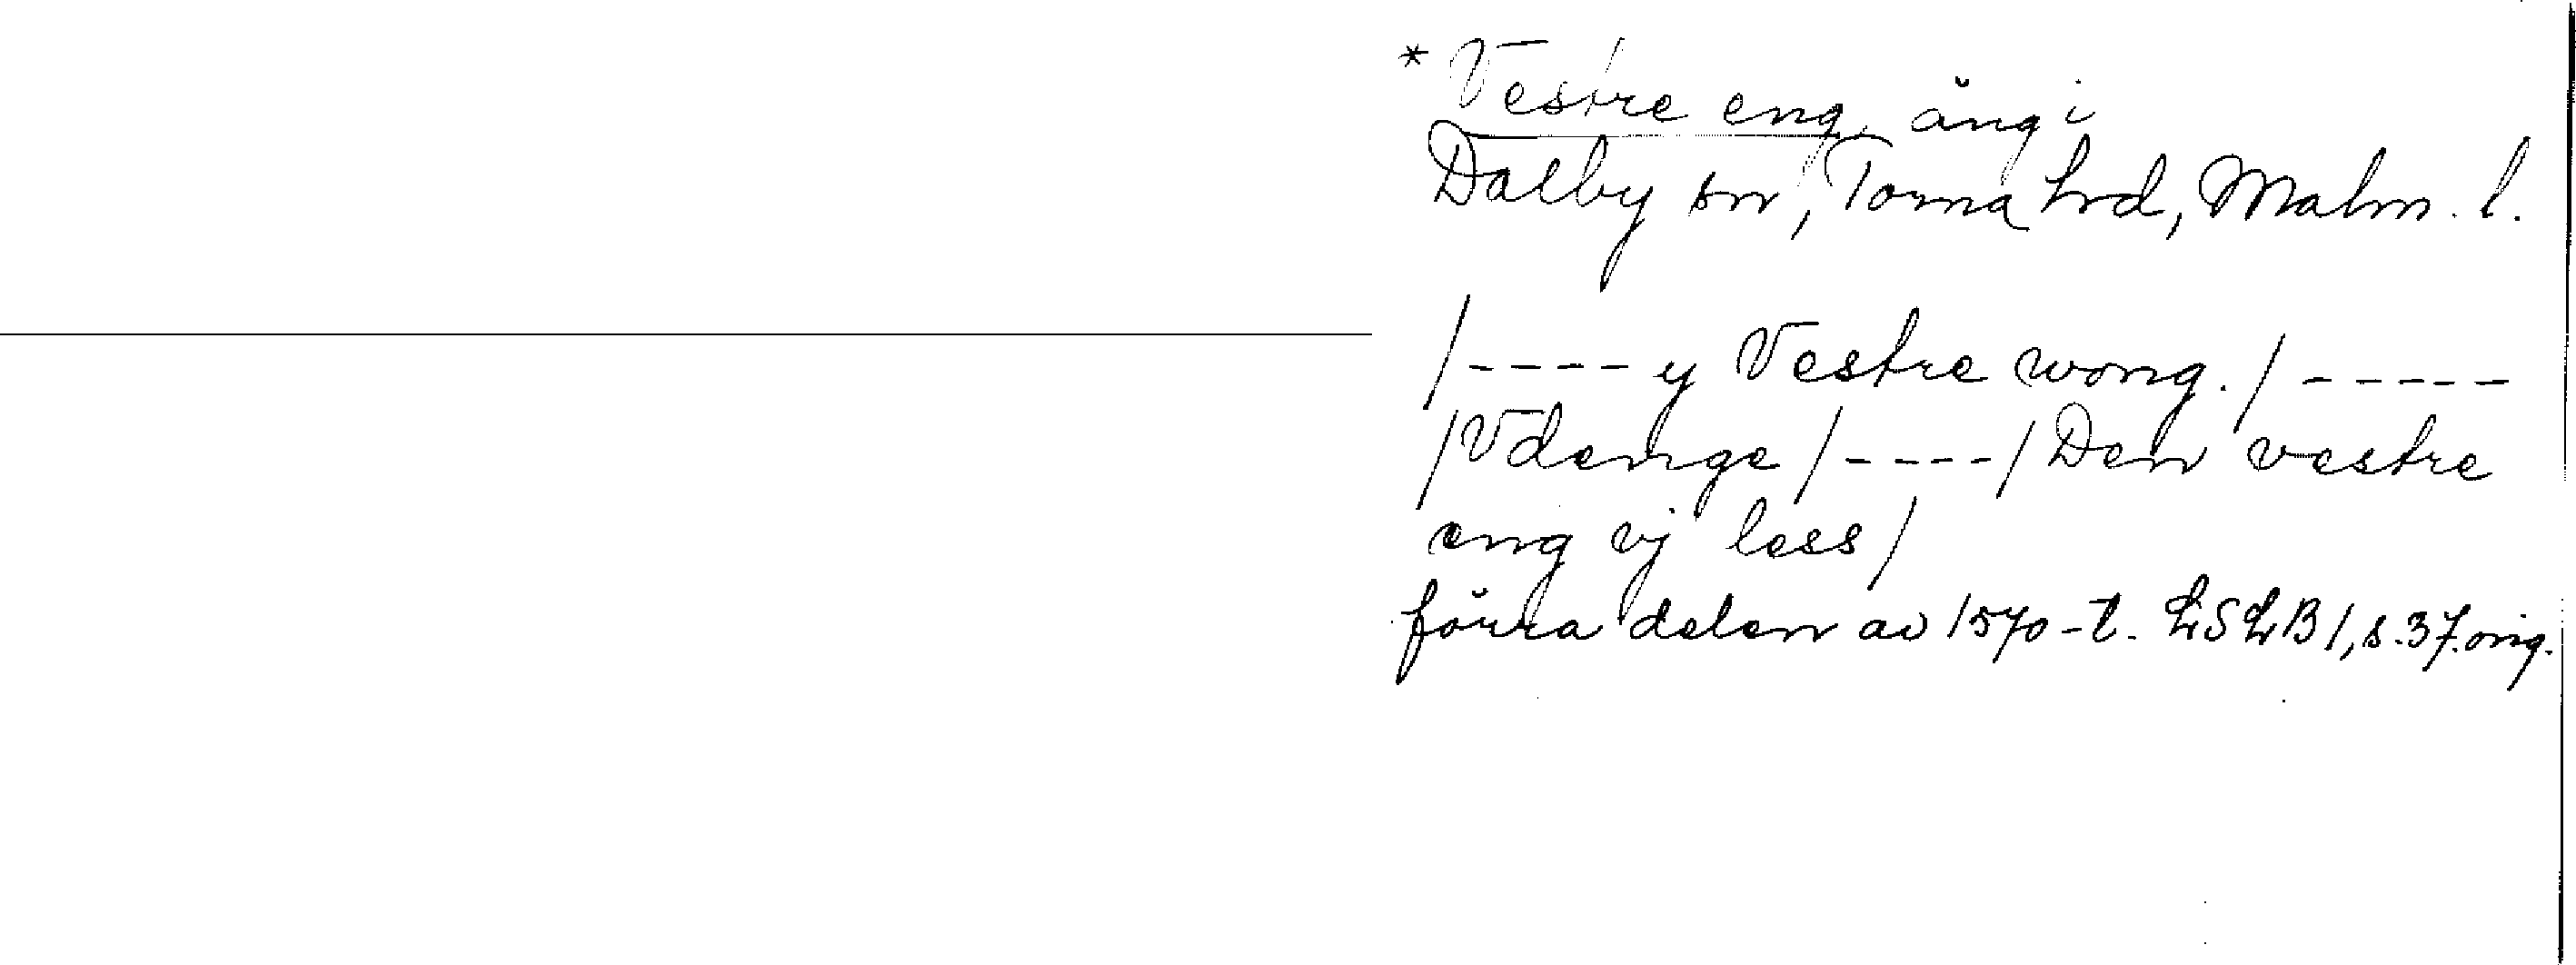 * Vestre eng, äng i
Dalby sn, Torna hrd, Malm. l.
/---- y Vestre wong. / -----
/ Vdenge / ---- / Den vestre
eng vj less /
förra delen av 1570-t. LSLB 1, s. 37. orig.